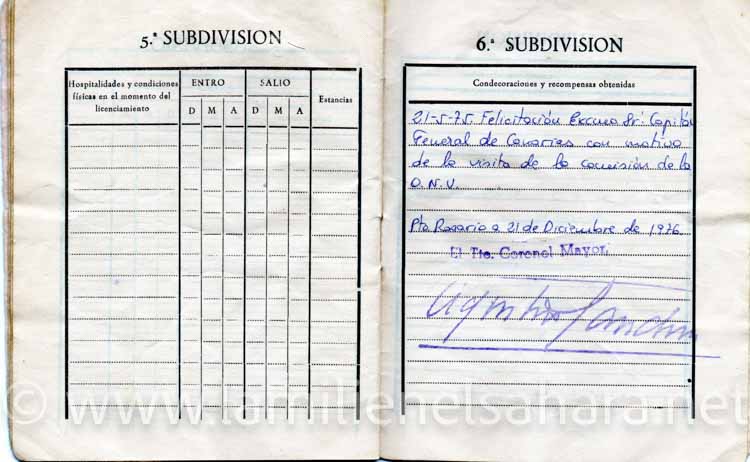 5.ª SUBDIVISION
Hospitalidades y condiciones físicas en el momento del licenciamiento
ENTRO
SALIO
Estancias
D M A D M A
6.ª SUBDIVISION
Condecoraciones y recompensas obtenidas
21-5-75. Felicitación Excmo Sr. Capitán
General de Canarias con motivo
de la visita de la comisión de la
O.N.U.
Pto Rosario a 21 de Diciembre de 1976
El Tte. Coronel Mayor,
© www.lamilienelsahara.net